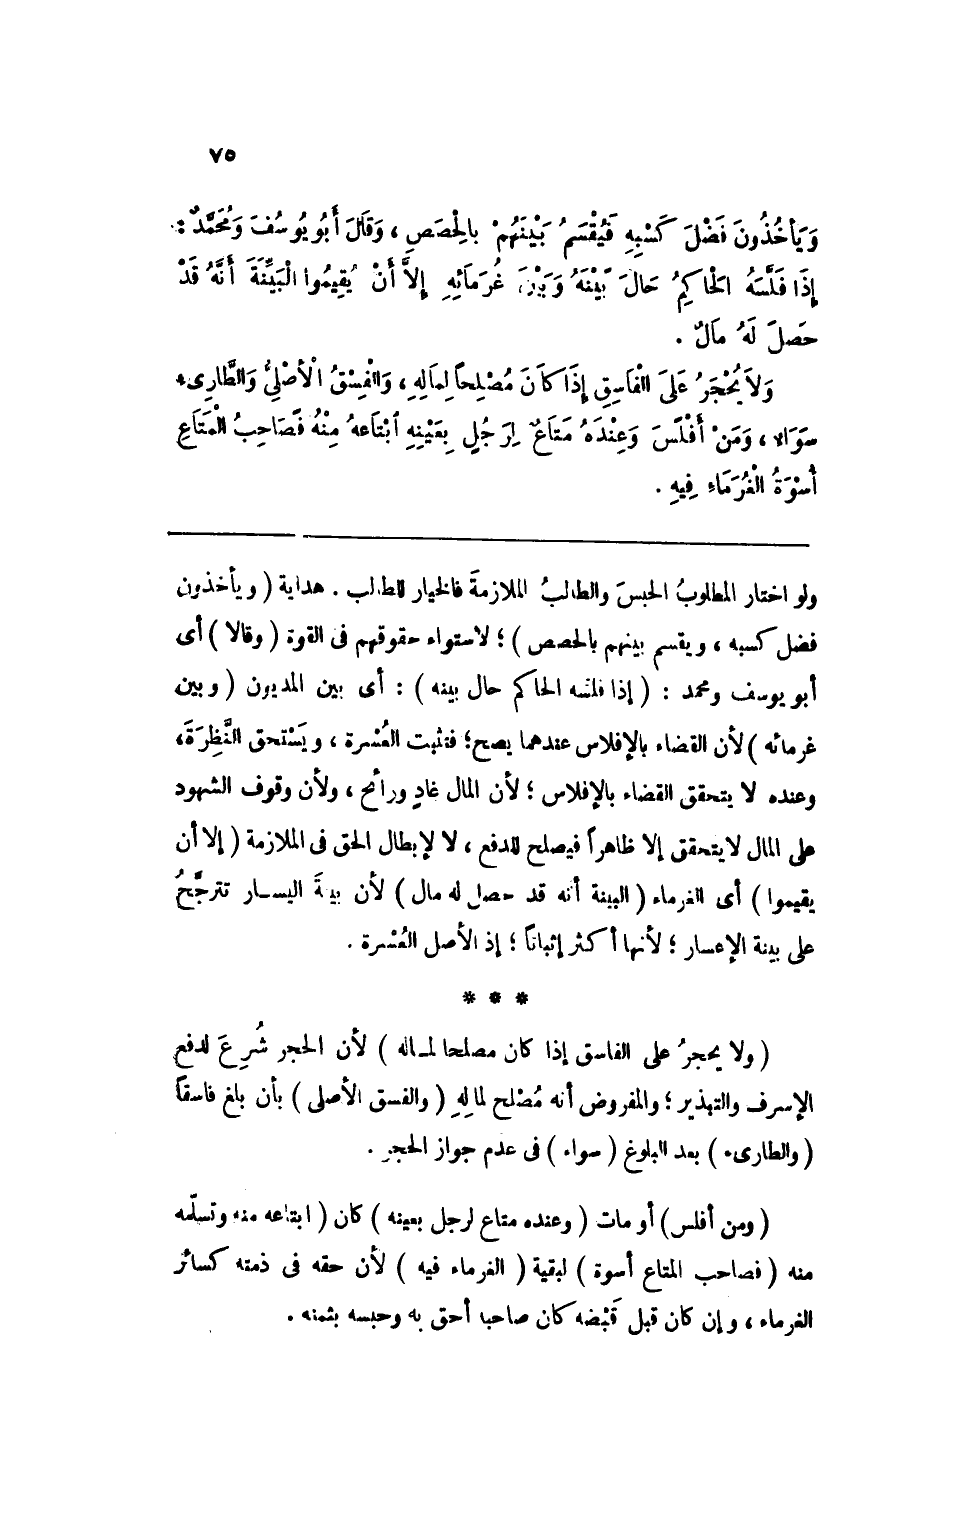 ٧٥
وَيَأْخُذُونَ فَضْلَ كَسْبِهِ فَيُقْسَمُ بَيْنَهُمْ بِالْحِصَصِ ، وَقَالَ أَبُو يُوسُفَ وَمُحَمَّدٌ :
إِذَا فَلَّسَهُ الْحَاكِمُ حَالَ بَيْنَهُ وَبَيْنَ غُرَمَائِهِ إِلاَّ أَنْ يُقِيمُوا الْبَيِّنَةَ أَنَّهُ قَدْ
حَصَلَ لَهُ مَالٌ .
وَلاَ يُحْجَرُ عَلَى الْفَاسِقِ إِذَا كَانَ مُصْلِحاً لِمَالِهِ ، وَالْفِسْقُ الْأَصْلِيُّ وَالطَّارِىءُ
سَوَاءٌ ، وَمَنْ أَفْلَسَ وَعِنْدَهُ مَتَاعٌ لِرَجُلٍ بِعَيْنِهِ ابْتَاعَهُ مِنْهُ فَصَاحِبُ الْمَتَاعِ
أُسْوَةُ الْغُرَمَاءِ فِيهِ .
ولو اختار المطلوبُ الحبسَ والطالبُ الملازمةَ فالخيار للطالب . هداية ( ويأخذون
فضل كسبه ، ويقسم بينهم بالحصص ) ؛ لاستواء حقوقهم فى القوة ( وقالا ) أى
أبو يوسف ومحمد : ( إذا فلسه الحاكم حال بينه ) : أى بين المديون ( وبين
غرمائه ) لأن القضاء بالإفلاس عندهما يصح ؛ فتثبت العُسْرة ، ويَسْتحق النَّظِرَةَ ،
وعنده لا يتحقق القضاء بالإفلاس ؛ لأن المال غادٍ ورائح ، ولأن وقوف الشهود
على المال لا يتحقق إلا ظاهراً فيصلح للدفع ، لا لإبطال الحق فى الملازمة ( إلا أن
يقيموا ) أى الغرماء ( البينة أنه قد حصل له مال ) لأن بينةَ اليسار تترجَّحُ
على بينة الإعسار ؛ لأنها أكثر إثباتاً ؛ إذ الأصل العُسْرة .
* * *
( ولا يحجرُ على الفاسق إذا كان مصلحا لماله ) لأن الحجر شُرِعَ لدفع
الإسرف والتبذير ؛ والمفروض أنه مُصْلح لمالِهِ ( والفسق الأصلى ) بأن بلغ فاسقاً
( والطارىء ) بعد البلوغ ( سواء ) فى عدم جواز الحجر .
( ومن أفلس ) أو مات ( وعنده متاع لرجل بعينه ) كان ( ابتاعه منه وتسلّمه
منه ( فصاحب المتاع أسوة ) لبقية ( الغرماء فيه ) لأن حقه فى ذمته كسائر
الغرماء ، وإن كان قبل قَبْضه كان صاحبا أحق به وحبسه بثمنه .